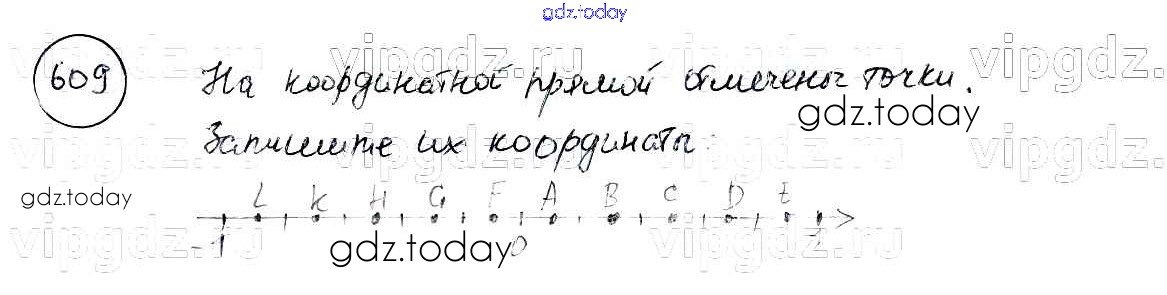 gdz.today
vipgdz.ru vipgdz.ru vipgdz.ru vipgdz.
609 На координатной прямой отмечены точки.
gdz.today
Запишите их координаты:
vipgdz.ru vipgdz.ru vipgdz.ru vipgdz.
gdz.today
L K H G F A B C D E
-1 0 1
vipgdz.ru gdz.today vipgdz.ru vipgdz.